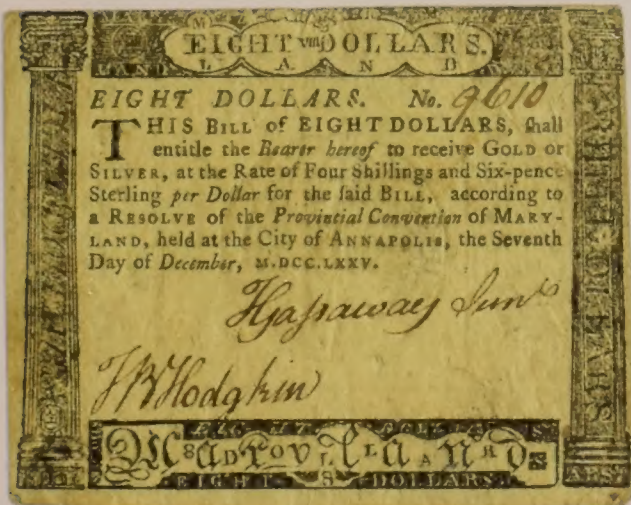 EIGHT VIII DOLLARS.
LAND
EIGHT DOLLARS. No. 9610
THIS BILL of EIGHT DOLLARS, ſhall
entitle the Bearer hereof to receive GOLD or
SILVER, at the Rate of Four Shillings and Six-pence
Sterling per Dollar for the ſaid BILL, according to
a RESOLVE of the Provincial Convention of MARY-
LAND, held at the City of ANNAPOLIS, the Seventh
Day of December, M.DCC.LXXV.
JW Hodgkin
EIGHT DOLLARS